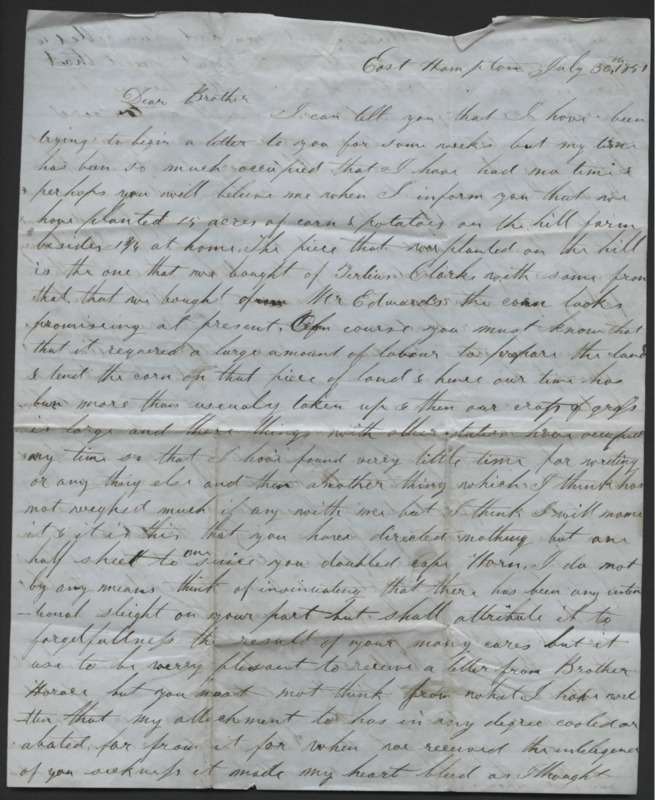 East Hampton July 30th 1851
Dear Brother
I can tell you that I have been
trying to begin a letter to you for some weeks but my time
has been so much occupied that I have had no time &
perhaps you will believe me when I inform you that we
have planted 15 acres of corn & potatoes on the hill farm
besides 1¾ at home. The piece that we planted on the hill
is the one that we bought of Tertius Clark with some from
that, that we bought of Mr Edwards the corn looks
promising at present. Of course you must know that
that it required a large amount of labour to prepare the land
& tend the corn on that piece of land & hence our time has
been more than usualy taken up & then our crop of grass
is large and these things with other duties have occupied
my time so that I have found verry little time for writing
or any thing else and then another thing which I think has
not weighed much if any with me but I think I will name
it & it is this that you have directed nothing but one
half sheet to me since you doubled cape Horn. I do not
by any means think of insinuating that there has been any inten
-tional sleight on your part but shall attribute it to
forgetfullness the result of your many cares but it
use to be verry pleasant to receive a letter from Brother
Horace but you must not think from what I have wri
tten that my attachment to has in any degree cooled or
abated far from it for when we received the inteligence
of you sickness it made my heart bleed as I thought